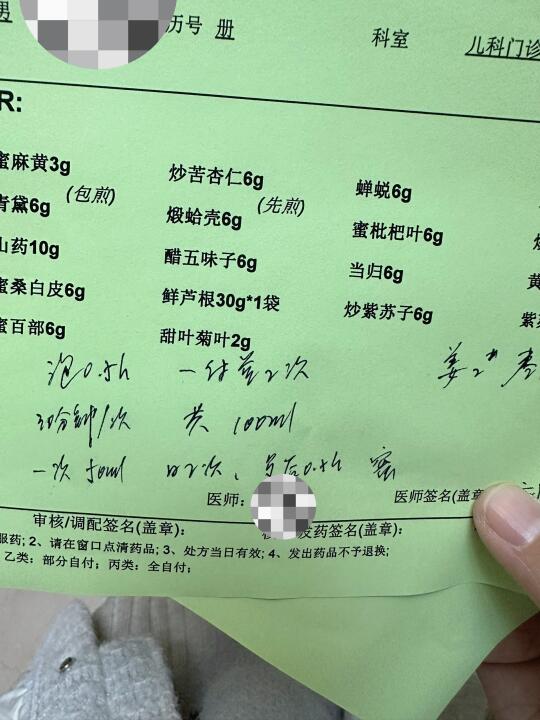 男 历号 册 科室 儿科门诊
R:
蜜麻黄3g 炒苦杏仁6g 蝉蜕6g
青黛6g (包煎) 煅蛤壳6g (先煎) 蜜枇杷叶6g
山药10g 醋五味子6g 当归6g 黄
蜜桑白皮6g 鲜芦根30g*1袋 炒紫苏子6g 紫
蜜百部6g 甜叶菊叶2g
泡0.5h 一付煎2次 姜2片 枣
30分钟/次 共100ml
一次50ml 日2次、 后0.5h 蜜
医师: 医师签名(盖章)
审核/调配签名(盖章): 发药签名(盖章):
服药; 2、请在窗口点清药品; 3、处方当日有效; 4、发出药品不予退换;
乙类: 部分自付; 丙类: 全自付;